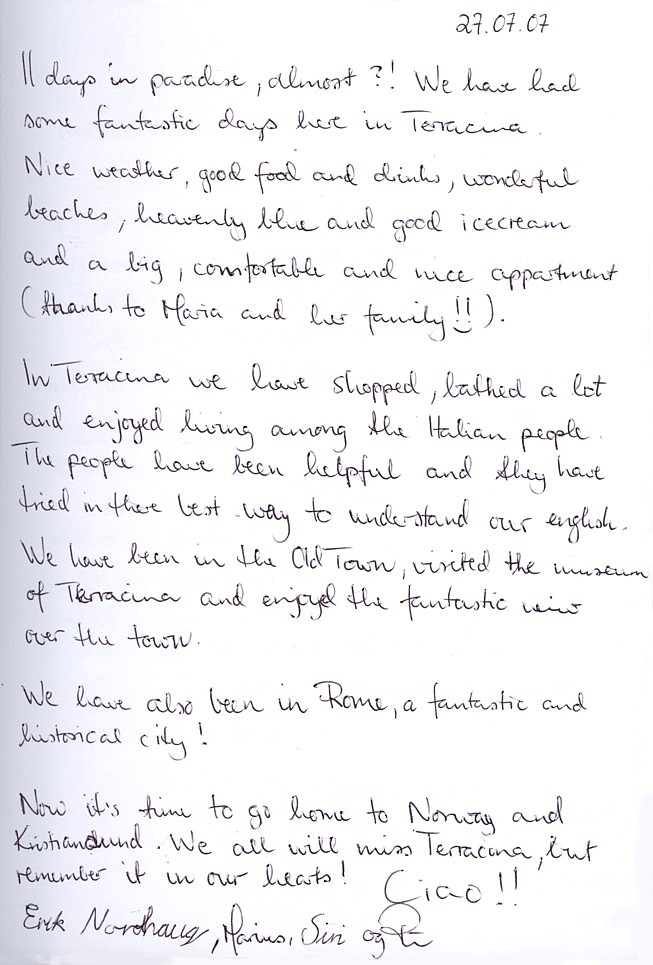 27.07.07
11 days in paradise, almost?! We have had
some fantastic days here in Terracina.
Nice weather, good food and drinks, wonderful
beaches, heavenly blue and good icecream
and a big, comfortable and nice appartment
(thanks to Maria and her family!!).
In Terracina we have shopped, bathed a lot
and enjoyed living among the Italian people.
The people have been helpful and they have
tried in there best way to understand our english.
We have been in the Old Town, visited the museum
of Terracina and enjoyed the fantastic view
over the town.
We have also been in Rome, a fantastic and
historical city!
Now it's time to go home to Norway and
Kristiandsund. We all will miss Terracina, but
remember it in our hearts! Ciao!!
Erik Nordhaug, Marius, Siri og